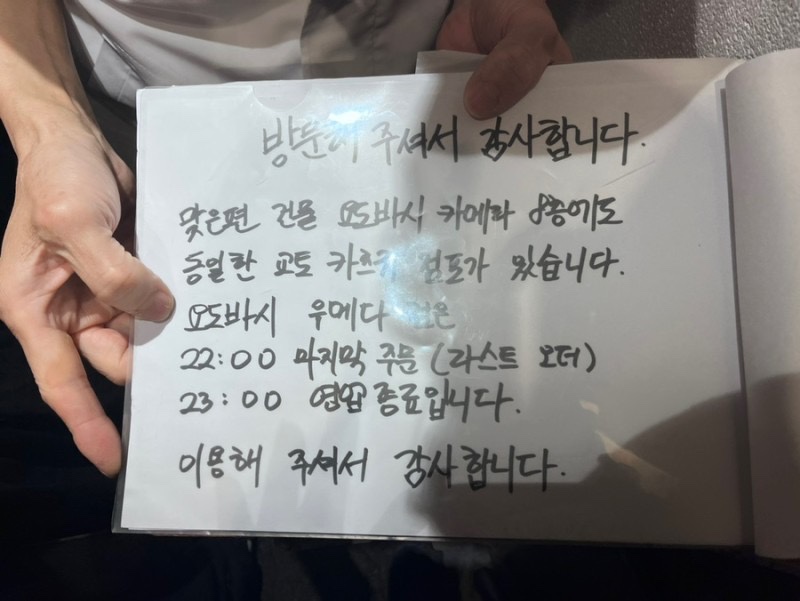 방문해 주셔서 감사합니다.
맞은편 건물 요도바시 카메라 8층에도
동일한 교토 카츠규 점포가 있습니다.
요도바시 우메다 점은
22:00 마지막 주문 (라스트 오더)
23:00 영업 종료입니다.
이용해 주셔서 감사합니다.